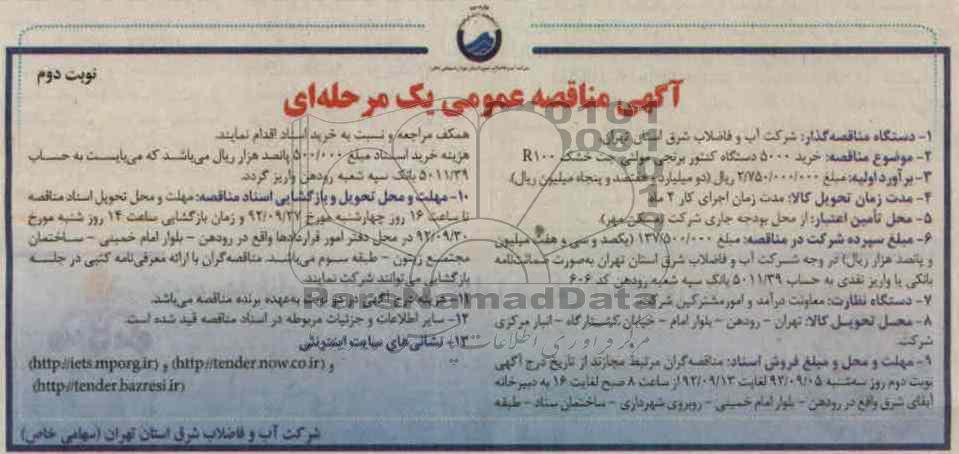 نوبت دوم
آگهی مناقصه عمومی یک مرحله‌ای
۱- دستگاه مناقصه‌گذار: شرکت آب و فاضلاب شرق استان تهران
۲- موضوع مناقصه: خرید ۵۰۰۰ دستگاه کنتور برنجی مولتی جت خشک R۱۰۰
۳- برآورد اولیه: مبلغ ۲/۷۵۰/۰۰۰/۰۰۰ ریال (دو میلیارد و هفتصد و پنجاه میلیون ریال).
۴- مدت زمان تحویل کالا: مدت زمان اجرای کار ۲ ماه
۵- محل تأمین اعتبار: از محل بودجه جاری شرکت (مسکن مهر).
۶- مبلغ سپرده شرکت در مناقصه: مبلغ ۱۳۷/۵۰۰/۰۰۰ (یکصد و سی و هفت میلیون
و پانصد هزار ریال) در وجه شرکت آب و فاضلاب شرق استان تهران به‌صورت ضمانتنامه
بانکی یا واریز نقدی به حساب ۵۰۱۱/۳۹ بانک سپه شعبه رودهن کد ۶۰۶
۷- دستگاه نظارت: معاونت درآمد و امور مشترکین شرکت
۸- محل تحویل کالا: تهران - رودهن - بلوار امام - خیابان کشتارگاه - انبار مرکزی
شرکت.
۹- مهلت و محل و مبلغ فروش اسناد: مناقصه‌گران مرتبط مجازند از تاریخ درج آگهی
نوبت دوم روز سه‌شنبه ۹۲/۰۹/۰۵ لغایت ۹۲/۰۹/۱۳ از ساعت ۸ صبح لغایت ۱۶ به دبیرخانه
آبفای شرق واقع در رودهن - بلوار امام خمینی - روبروی شهرداری - ساختمان ستاد - طبقه
همکف مراجعه و نسبت به خرید اسناد اقدام نمایند.
هزینه خرید اسناد مبلغ ۵۰۰/۰۰۰ پانصد هزار ریال می‌باشد که می‌بایست به حساب
۵۰۱۱/۳۹ بانک سپه شعبه رودهن واریز گردد.
۱۰- مهلت و محل تحویل و بازگشایی اسناد مناقصه: مهلت و محل تحویل اسناد مناقصه
تا ساعت ۱۶ روز چهارشنبه مورخ ۹۲/۰۹/۲۷ و زمان بازگشایی ساعت ۱۴ روز شنبه مورخ
۹۲/۰۹/۳۰ در محل دفتر امور قراردادها واقع در رودهن - بلوار امام خمینی - ساختمان
مجتمع زیتون - طبقه سوم می‌باشد. مناقصه‌گران با ارائه معرفی‌نامه کتبی در جلسه
بازگشایی می‌توانند شرکت نمایند.
۱۱- هزینه درج آگهی در دو نوبت به‌عهده برنده مناقصه می‌باشد.
۱۲- سایر اطلاعات و جزئیات مربوطه در اسناد مناقصه قید شده است.
۱۳- نشانی‌های سایت اینترنتی
(http://iets.mporg.ir) و (http://tender.now.co.ir) و
(http://tender.bazresi.ir)
شرکت آب و فاضلاب شرق استان تهران (سهامی خاص)
ParsNamadData
مرکز فرآوری اطلاعات